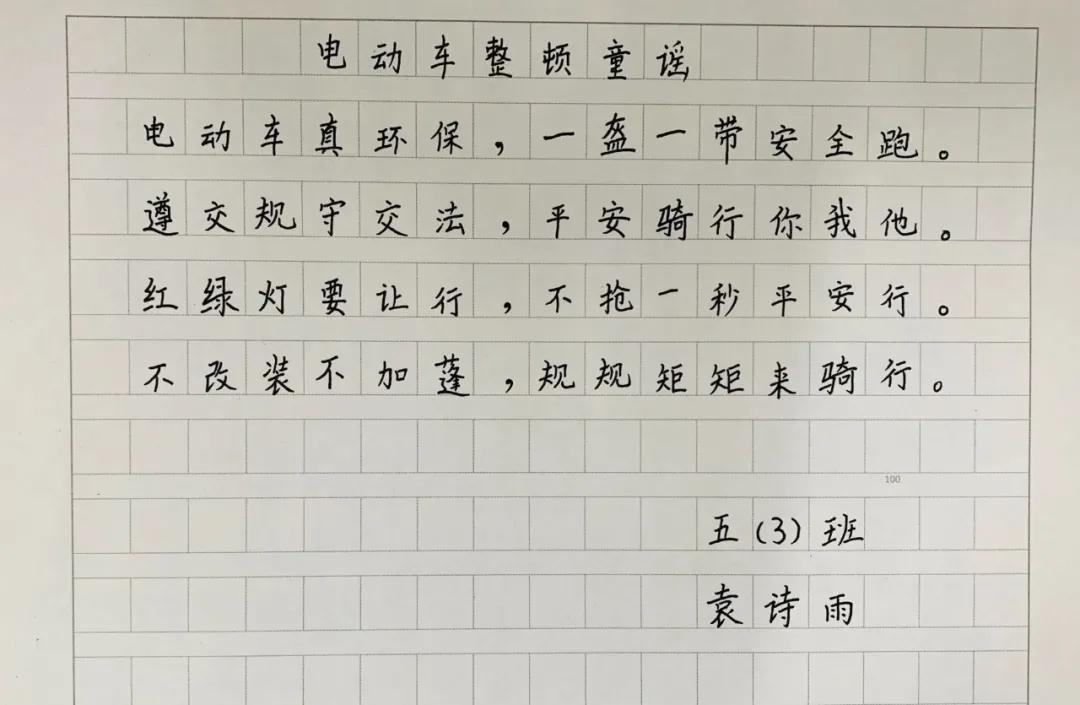 电动车整顿童谣
电动车真环保，一盔一带安全跑。
遵交规守交法，平安骑行你我他。
红绿灯要让行，不抢一秒平安行。
不改装不加蓬，规规矩矩来骑行。
100
五(3)班
袁诗雨